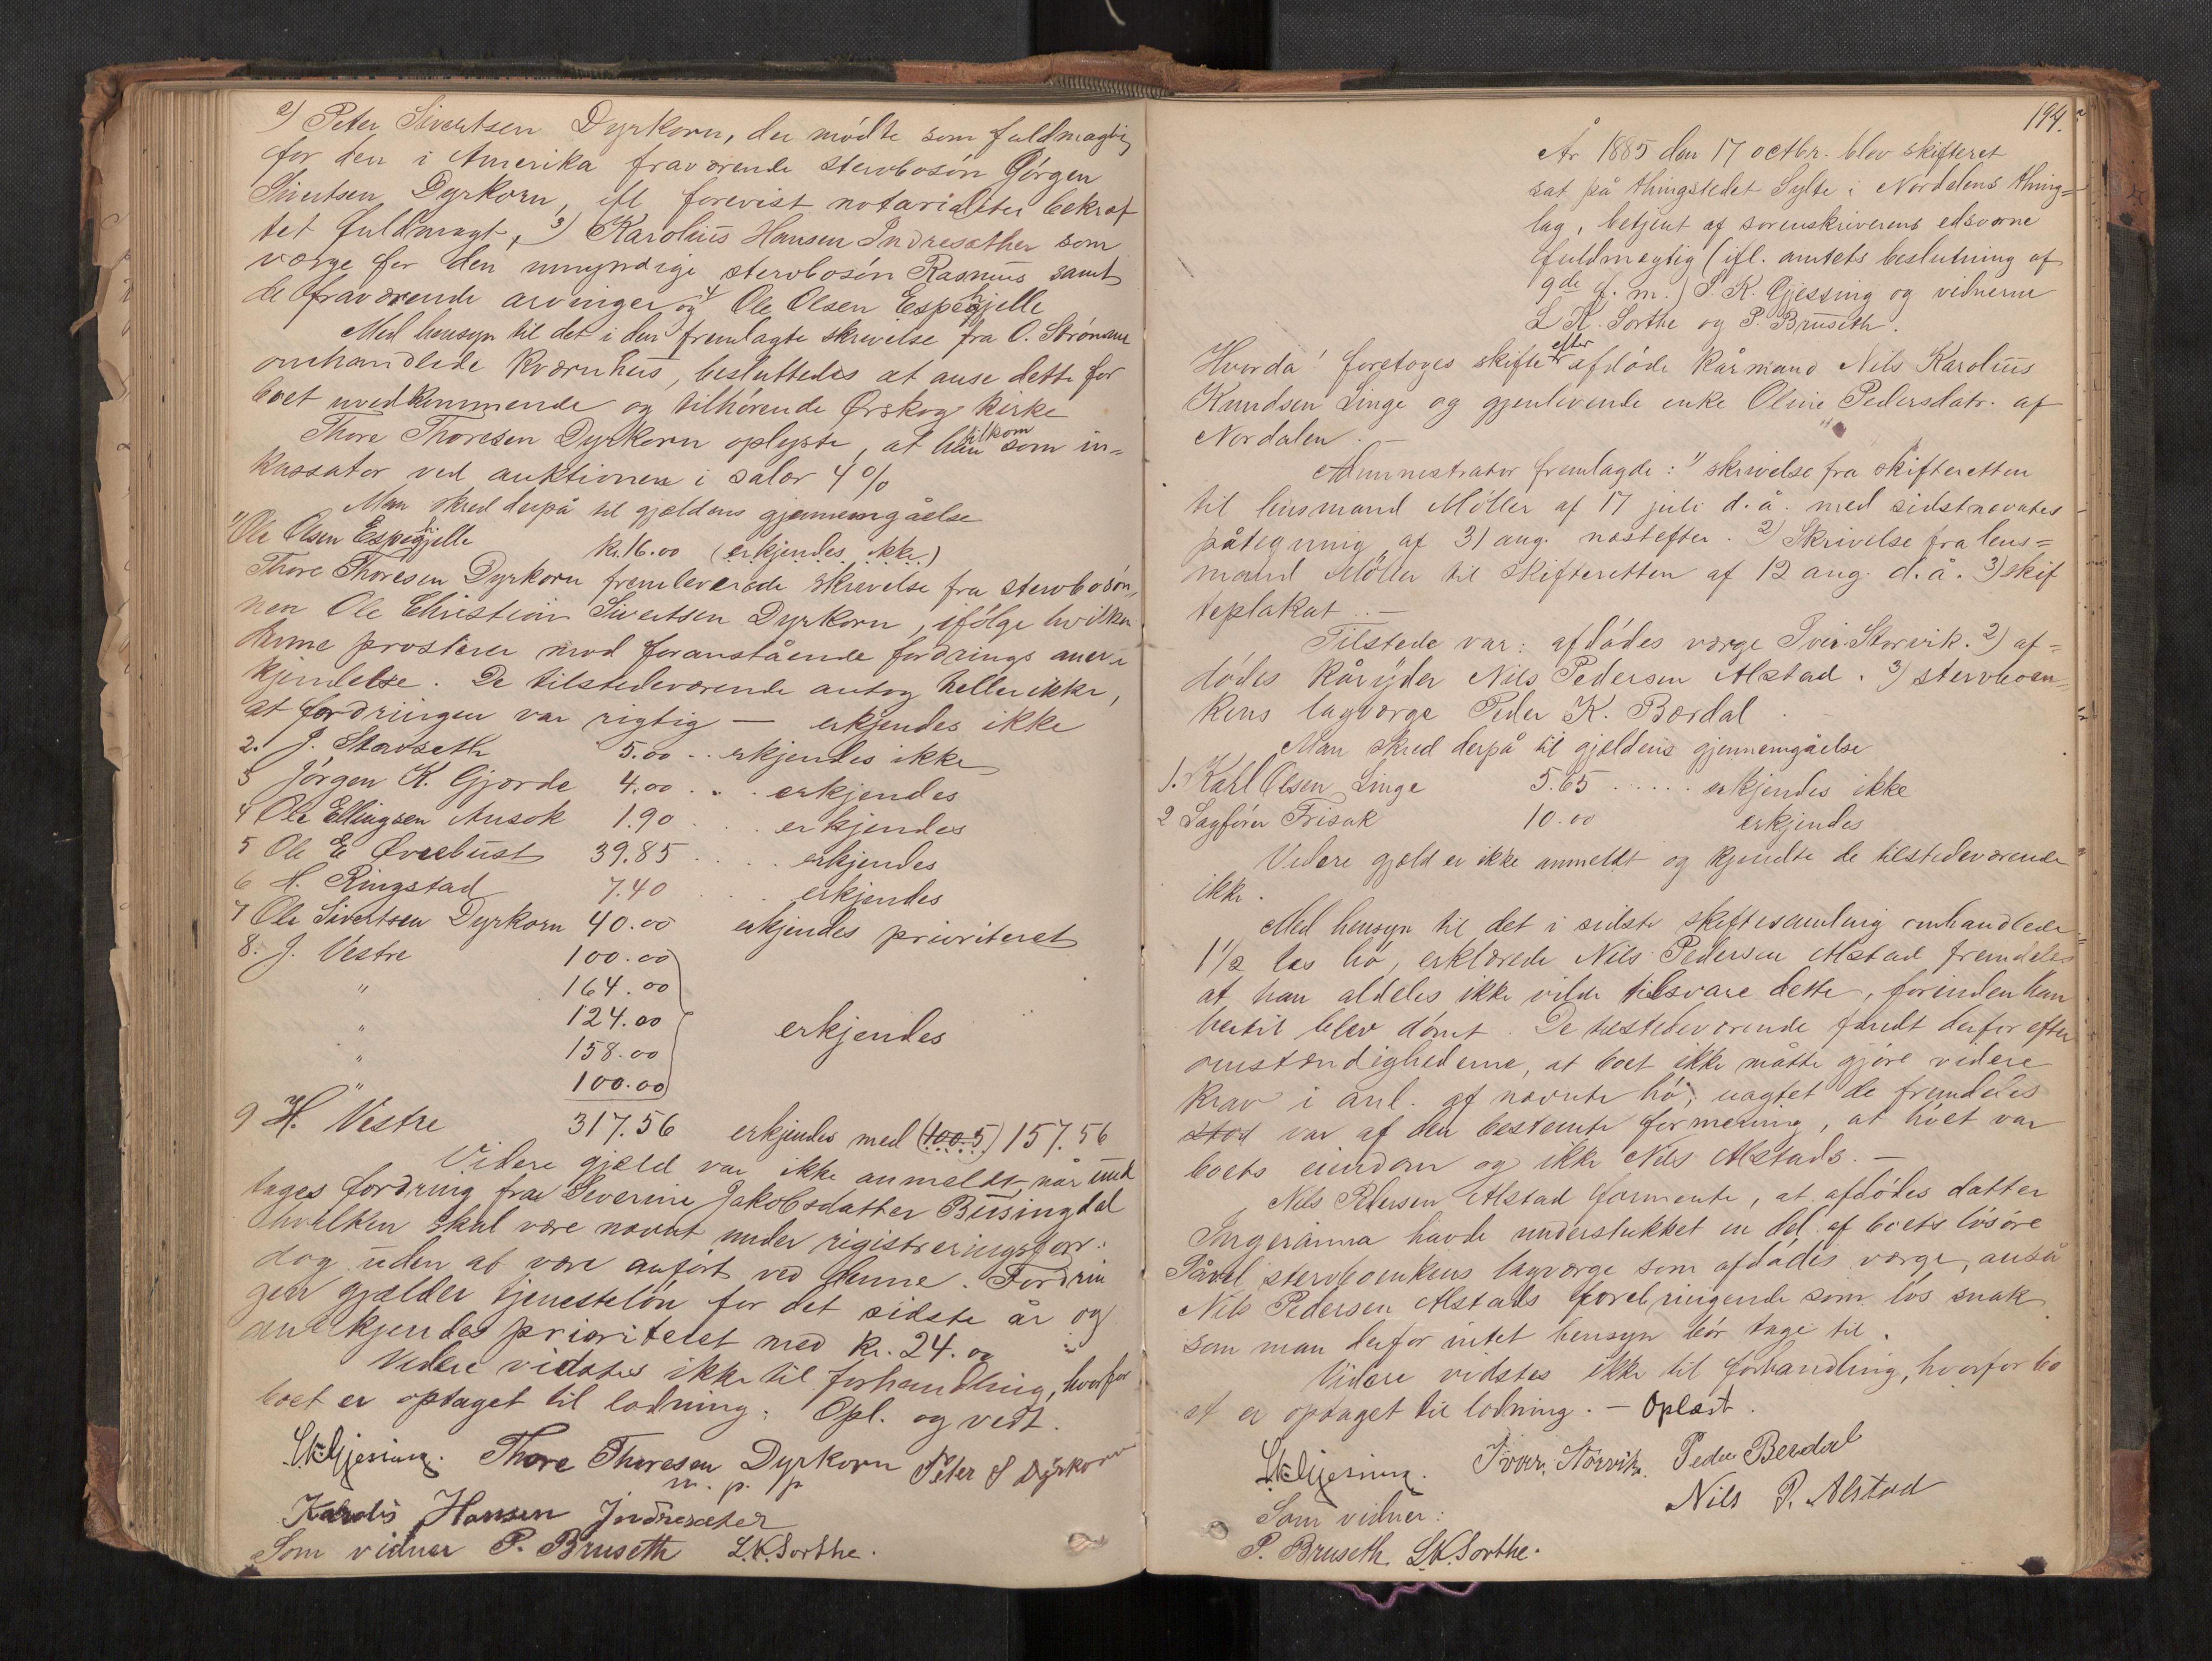 2) Peter Sivertsen Dyrkorn, der mødte som fuldmægtig
for den i Amerika fraværende stervbosøn Jørgen
Sivertsen Dyrkorn, ifl. forevist notarialiter bekræf
tet fuldmagt, 3) Karolius Hansen Indresæther som
værge for den umyndige stervbosøn Rasmus samt
de fraværende arvinger og 4) Ole Olsen Espehjelle
Med hensyn til det i den fremlagte skrivelse fra O. Strømme
omhandlede kværnhus, besluttedes at anse dette for
boet uvedkommende og tilhørende Ørskog kirke
Thore Thoresen Dyrkorn oplyste, at ham tilkom som in=
kassator ved auktionen i salær 4%
Man skred derpå til gjældens gjennemgåelse
1) Ole Olsen Espehjelle kr. 16.00 (erkjendes ikke)
Thore Thoresen Dyrkorn fremleverede skrivelse fra stervbosøn,
nen Ole Christian Sivertsen Dyrkorn, ifølge hvilken
denne prosterer mod foranstående fordrings aner-
kjendelse. De tilstedeværende antog heller ikke,
at fordringen var rigtig — erkjendes ikke
2. J. Stavseth 5.00 .. erkjendes ikke
3 Jørgen K. Gjærde 4.00 . . . erkjendes
4 Ole Ellingsen Ansok 1.90 . . . erkjendes
5 Ole E Øvrebust 39.85 . . . . erkjendes
6 H. Ringstad 7.40 . . . erkjendes
7 Ole Sivertsen Dyrkorn 40.00 erkjendes prioriteret
8. J. Vestre 100.00
" 164.00
" 124.00 erkjendes
" 158.00
" 100.00
9 H. Vestre 317.56 erkjendes med (100.5) 157.56
Videre gjæld var ikke anmeldt, når und
tages fordring fra Severine Jakobsdatter Busingdal
hvilken skal være nævnt under registreringsforr:
dog uden at være anført ved denne. Fordrin
gen gjælder tjenesteløn for det sidste år og
anerkjendes prioriteret med kr. 24.00
Videre vidstes ikke til forhandling, hvorfor
boet er optaget til lodning. Opl. og vedt.
S.K. Gjessing. Thore Thoresen Dyrkorn Peter S Dyrkorn
m. p. p
Karolis Hansen Indresæter
Som vidner P. Bruseth L.K. Sorthe.
194.
År 1885 den 17 octbr. blev skifteret
sat på thingstedet Sylte i Nordalens thing=
lag, betjent af sorenskriverens edsvorne
fuldmægtig (ifl. amtets beslutning af
9de d. m.) S. K. Gjessing og vidnerne
L K. Sorthe og P. Bruseth.
Hvorda! foretoges skifte efter afdøde kårmand Nils Karolius
Knudsen Linge og gjenlevende enke Oline Pedersdatr. af
Nordalen. —
Administrator fremlagde: 1) skrivelse fra skifteretten
til lensmand Møller af 17 juli d. å. med sidstnævntes
påtegning af 31 aug. næstefter. 2) Skrivelse fra lens=
mand Møller til skifteretten af 12 aug. d. å. 3) skif
teplakat. —
Tilstede var: afdødes værge Iver Storvik. 2) af=
dødes kåryder Nils Pedersen Alstad. 3) stervboen,
kens lagværge Peder K. Berdal.
Man skred derpå til gjældens gjennemgåelse
1. Karl Olsen Linge 5.65 . . . . . erkjendes ikke
2 Sagfører Frisak 10.00 erkjendes
Videre gjæld er ikke anmeldt og kjendte de tilstedeværende
ikke.
Med hensyn til det i sidste skiftesamling omhandlede
1 1/2 læs hø, erklærede Nils Pedersen Alstad fremdeles
at han aldeles ikke vilde tilsvare dette, forinden han
hertil blev dømt. De tilstedeværende fandt derfor efter
omstændighederne, at boet ikke måtte gjøre videre
krav i anl. af nævnte hø, uagtet de fremdeles
stod var af den bestemte formening, at høet var
boets eiendom og ikke Nils Alstads. —
Nils Pedersen Alstad formente, at afdødes datter
Ingerianna havde understukket en del af boets løsøre
Såvel stervboenkens lagværge som afdødes værge, anså
Nils Pedersen Alstads forebringende som løs snak
som man derfor intet hensyn bør tage til.
Videre vidstes ikke til forhandling, hvorfor bo
et er optaget til lodning. — Oplæst.
S.K. Gjessing. Iver Storvik. Peder Berdal
Nils P. Alstad
Som vidner:
P. Bruseth. L.K. Sorthe.